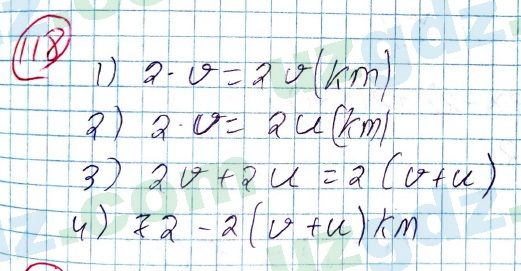 118
1) 2·v = 2v (km)
2) 2·v = 2u (km)
3) 2v + 2u = 2(v+u)
4) 72 - 2(v+u) km